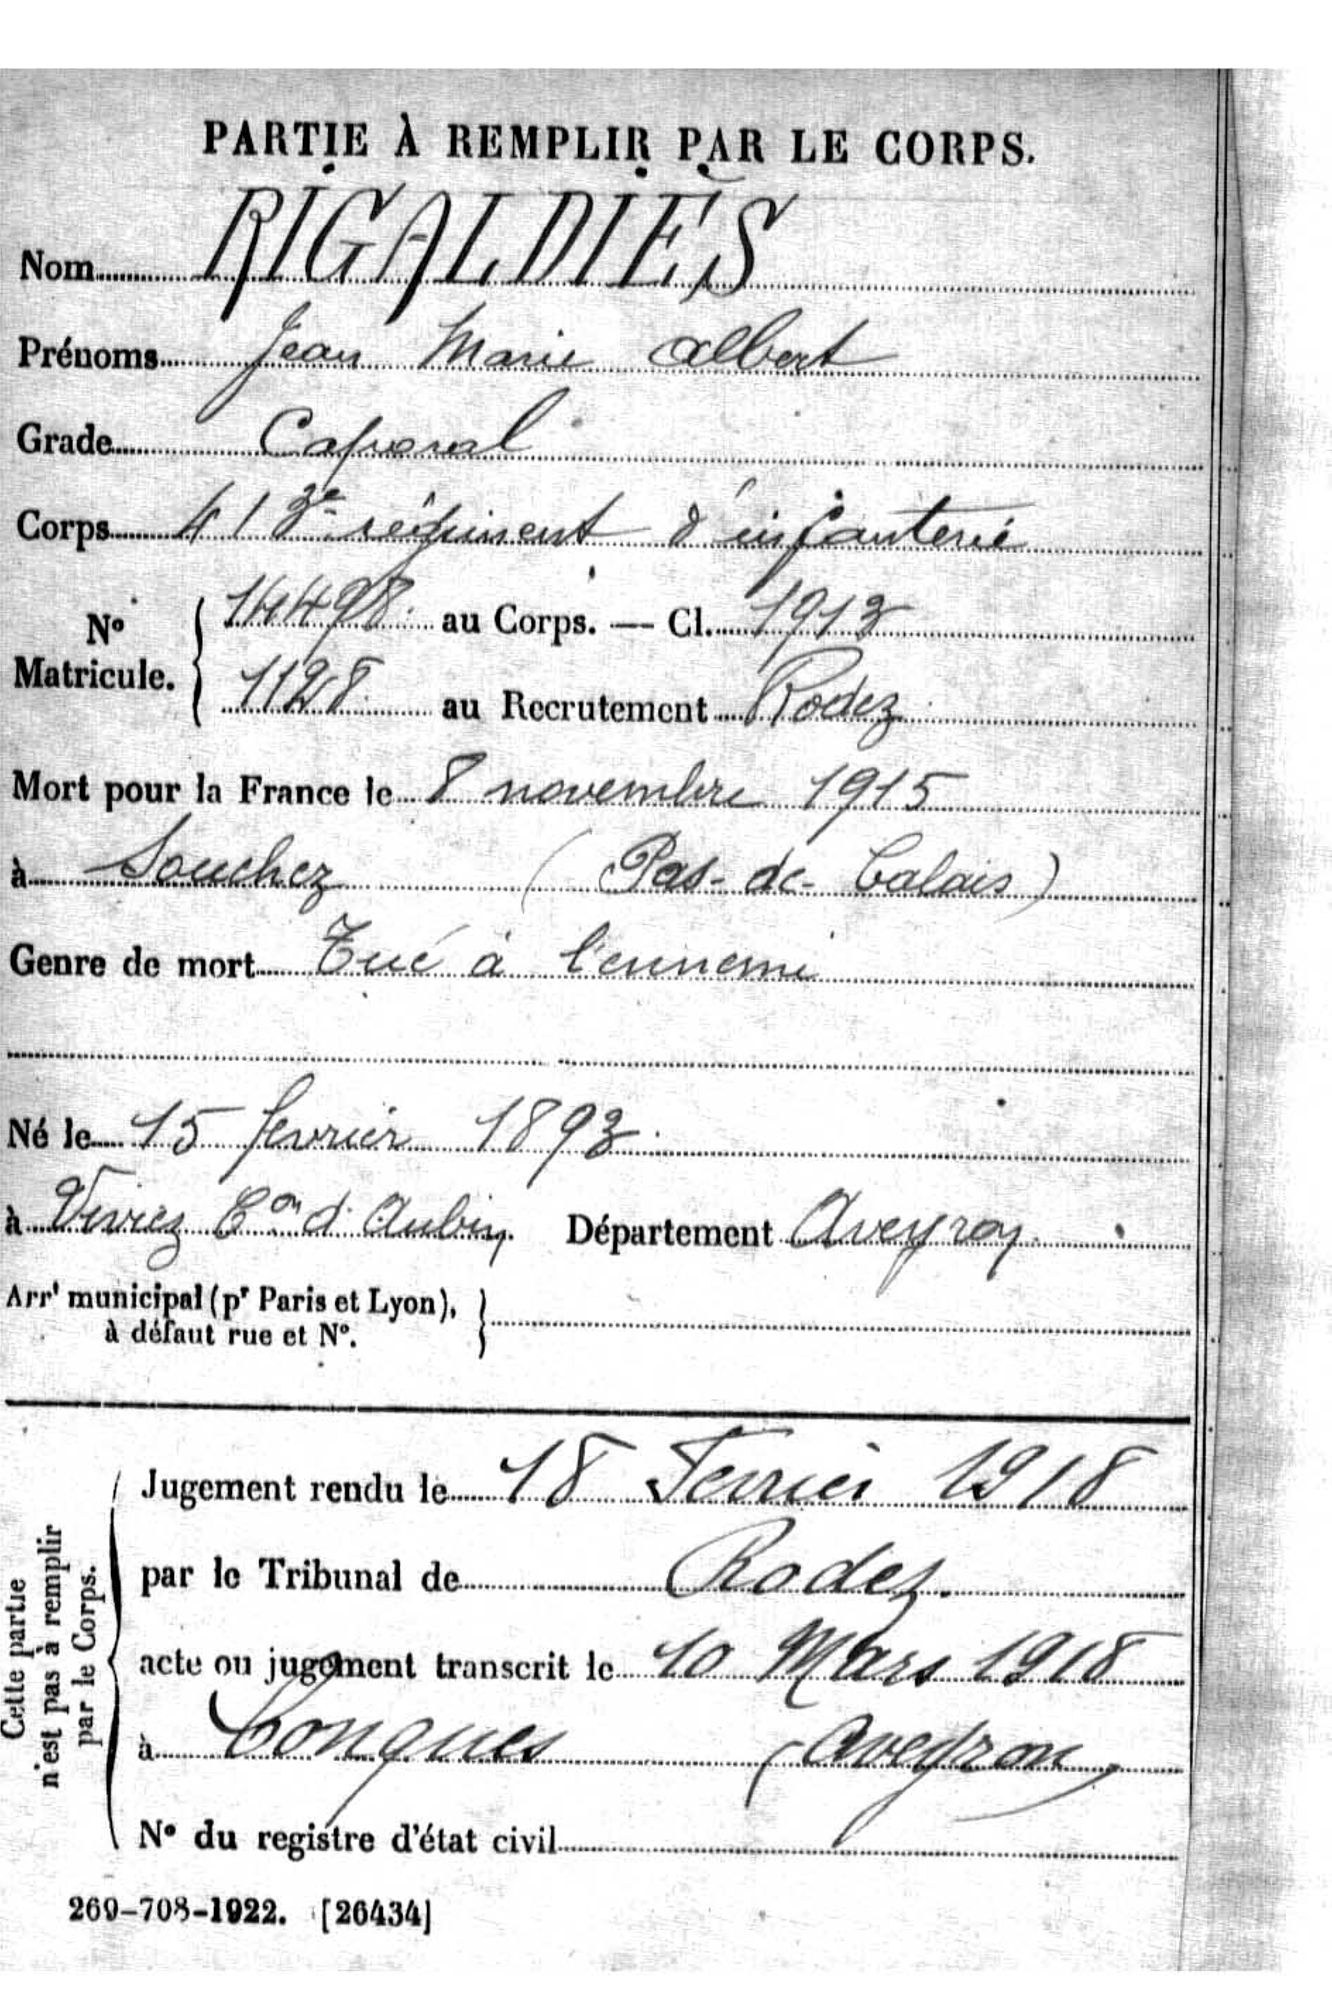 PARTIE À REMPLIR PAR LE CORPS.
Nom RIGALDIÈS
Prénoms Jean Marie Albert
Grade Caporal
Corps 413e régiment d'infanterie
No Matricule. { 14498 au Corps. — Cl. 1913
1128 au Recrutement Rodez
Mort pour la France le 8 novembre 1915
à Souchez (Pas-de-Calais)
Genre de mort Tué à l'ennemi
Né le 15 février 1893
à Viviez Con d'Aubin Département Aveyron
Arrt municipal (pr Paris et Lyon), }
à défaut rue et No.
Cette partie
n'est pas à remplir
par le Corps.
Jugement rendu le 18 Fevrier 1918
par le Tribunal de Rodez.
acte ou jugement transcrit le 10 Mars 1918
à Conques (Aveyron)
No du registre d'état civil
269-708-1922. [26434]